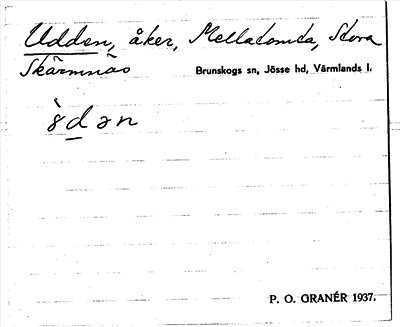 Udden, åker, Mellatomta, Stora
Skärmnäs Brunskogs sn, Jösse hd, Värmlands l.
P. O. GRANÉR 1937.